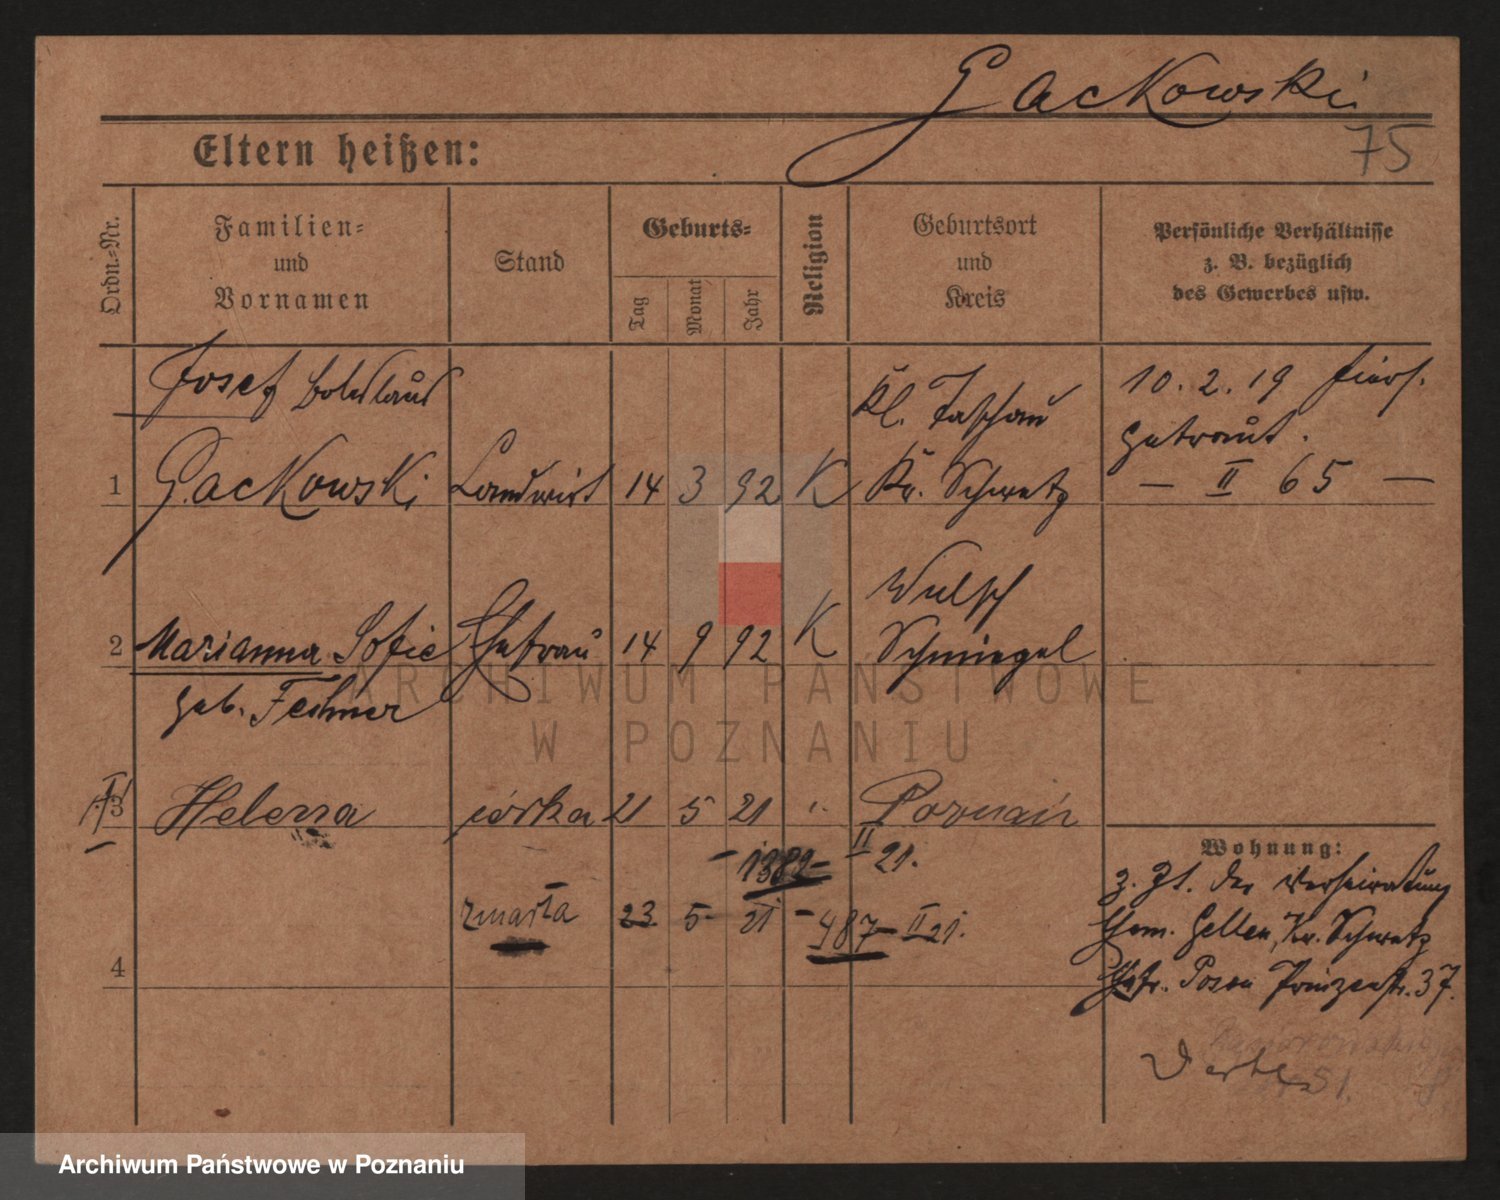 Gackowski
75
Eltern heißen:
Ordn.-Nr.
Familien-
und
Vornamen
Stand
Geburts-
Tag
Monat
Jahr
Religion
Geburtsort
und
Kreis
Persönliche Verhältnisse
z. B. bezüglich
des Gewerbes usw.
Josef Boleslaus
Kl. Taschau
10. 2. 19 hiers.
getraut.
1 Gackowski Landwirt 14 3 92 K Kr. Schwetz
— II 65 —
Wulsch
2 Marianna Sofie Ehefrau 14 9 92 K Schmiegel
geb. Fechner
3 Helena córka 21 5 21 Poznań
– 1382 – II 21.
zmarła 23 5 21 – 487 – II 21.
4
Wohnung:
z. Zt. der Verheiratung
Ehem. Gellen, Kr. Schwetz
Ehefr. Posen Prinzenstr. 37.
ARCHIWUM PAŃSTWOWE
W POZNANIU
Archiwum Państwowe w Poznaniu